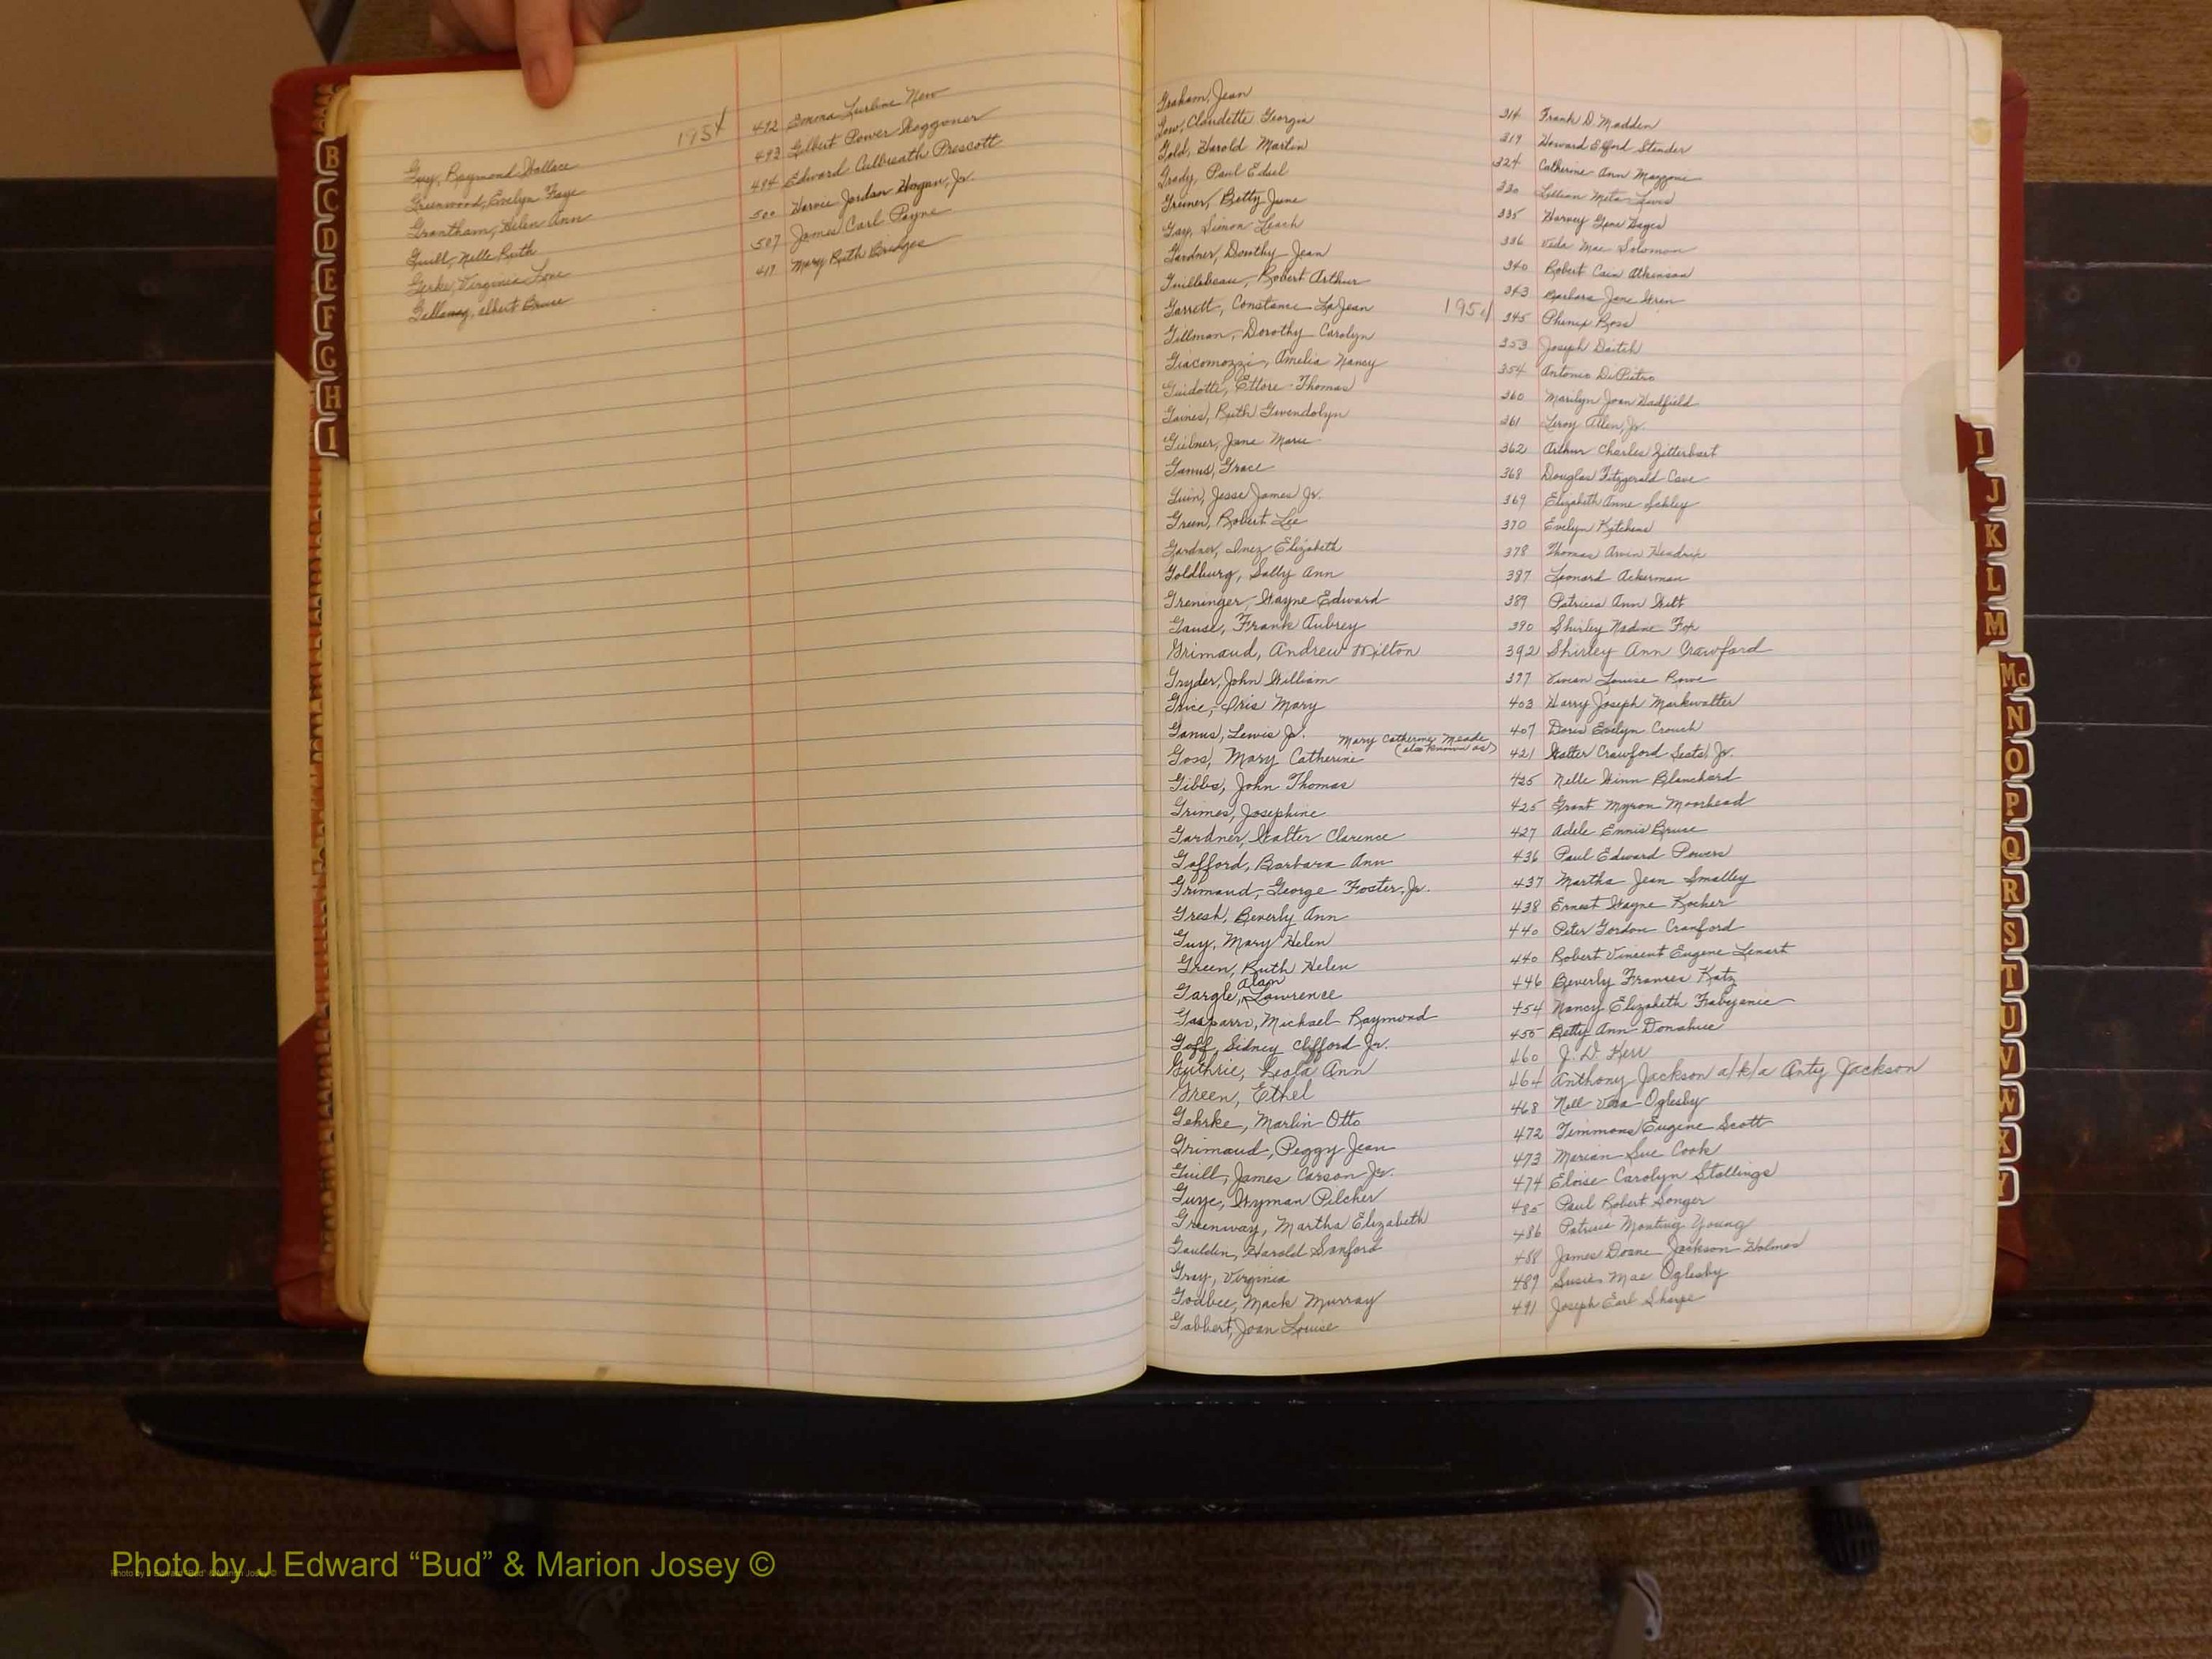 1954
Guy, Raymond Wallace 492 Emma Lurline New
Greenwood, Evelyn Faye 493 Gilbert Power Waggoner
Grantham, Helen Ann 494 Edward Culbreath Prescott
Guill, Nelle Ruth 500 Harvie Jordan Hogan, Jr.
Gerke, Virginia Love 507 James Carl Payne
Gellaway, Albert Bruce 417 Mary Ruth Bridges
Graham, Jean 314 Frank D. Madden
Gow, Claudette Georgia 319 Howard Elford Stender
Gold, Harold Martin 324 Catherine Ann Mazzone
Grady, Paul Edsel 330 Lillian Meta Lewis
Greiner, Betty June 335 Harvey Gene Hager
Gay, Simon Leach 336 Veda Mae Solomon
Gardner, Dorothy Jean 340 Robert Cain Atkinson
Guillebeau, Robert Arthur 343 Barbara Jane Wren
Garrett, Constance LaJean 1954 345 Phenix Ross
Gillman, Dorothy Carolyn 353 Joseph Daitch
Giacomozzi, Amelia Nancy 354 Antonio DiPietro
Guidotti, Ettore Thomas 360 Marilyn Joan Hadfield
Gaines, Ruth Gwendolyn 361 Leroy Allen, Jr.
Gielner, Jane Marie 362 Arthur Charles Zitterbart
Ganus, Grace 368 Douglas Fitzgerald Cave
Guin, Jesse James Jr. 369 Elizabeth Anne Schley
Green, Robert Lee 370 Evelyn Kitchens
Gardner, Inez Elizabeth 378 Thomas Arvin Hendrix
Goldburg, Sally Ann 387 Leonard Ackerman
Greninger, Wayne Edward 389 Patricia Ann Wilt
Gause, Frank Aubrey 390 Shirley Nadine Fox
Grimaud, Andrew Milton 392 Shirley Ann Crawford
Gryder, John William 397 Vivian Louise Rowe
Grice, Iris Mary 403 Harry Joseph Markwalter
Ganus, Lewis Jr. 407 Doris Evelyn Crouch
Mary Catherine Meade
(also known as)
Goss, Mary Catherine 421 Walter Crawford Seats, Jr.
Gibbs, John Thomas 425 Nelle Winn Blanchard
Grimes, Josephine 425 Grant Myron Moorhead
Gardner, Walter Clarence 427 Adele Ennis Bruce
Gofford, Barbara Ann 436 Paul Edward Powers
Grimaud, George Foster, Jr. 437 Martha Jean Smalley
Gresh, Beverly Ann 438 Ernest Wayne Kocher
Guy, Mary Helen 440 Peter Gordon Cranford
Green, Ruth Helen 440 Robert Vincent Eugene Lenart
Gargle, Alan Lawrence 446 Beverly Frances Katz
Gasparri, Michael Raymond 454 Nancy Elizabeth Frabyanic
Goff, Sidney Clifford Jr. 455 Betty Ann Donahue
Guthrie, Leola Ann 460 J. D. Kerr
Green, Ethel 464 Anthony Jackson a/k/a Anty Jackson
Gehrke, Marlin Otto 468 Nell Vera Oglesby
Grimaud, Peggy Jean 472 Timmons Eugene Scott
Guill, James Carson Jr. 473 Marian Sue Cook
Guye, Wyman Pilcher 474 Eloise Carolyn Stallings
Greenway, Martha Elizabeth 485 Paul Robert Songer
Gaulden, Harold Sanford 486 Patricia Young
Gray, Virginia 488 James Doane Jackson Holmes
Godbee, Mack Murray 489 Susie Mae Oglesby
Gabbert, Joan Louise 491 Joseph Earl Sharpe
B
C
D
E
F
G
H
I
I
J
K
L
M
Mc
N
O
P
Q
R
S
T
U
V
W
X
Y
Photo by J Edward “Bud” & Marion Josey ©
Photo by J Edward “Bud” & Marion Josey ©